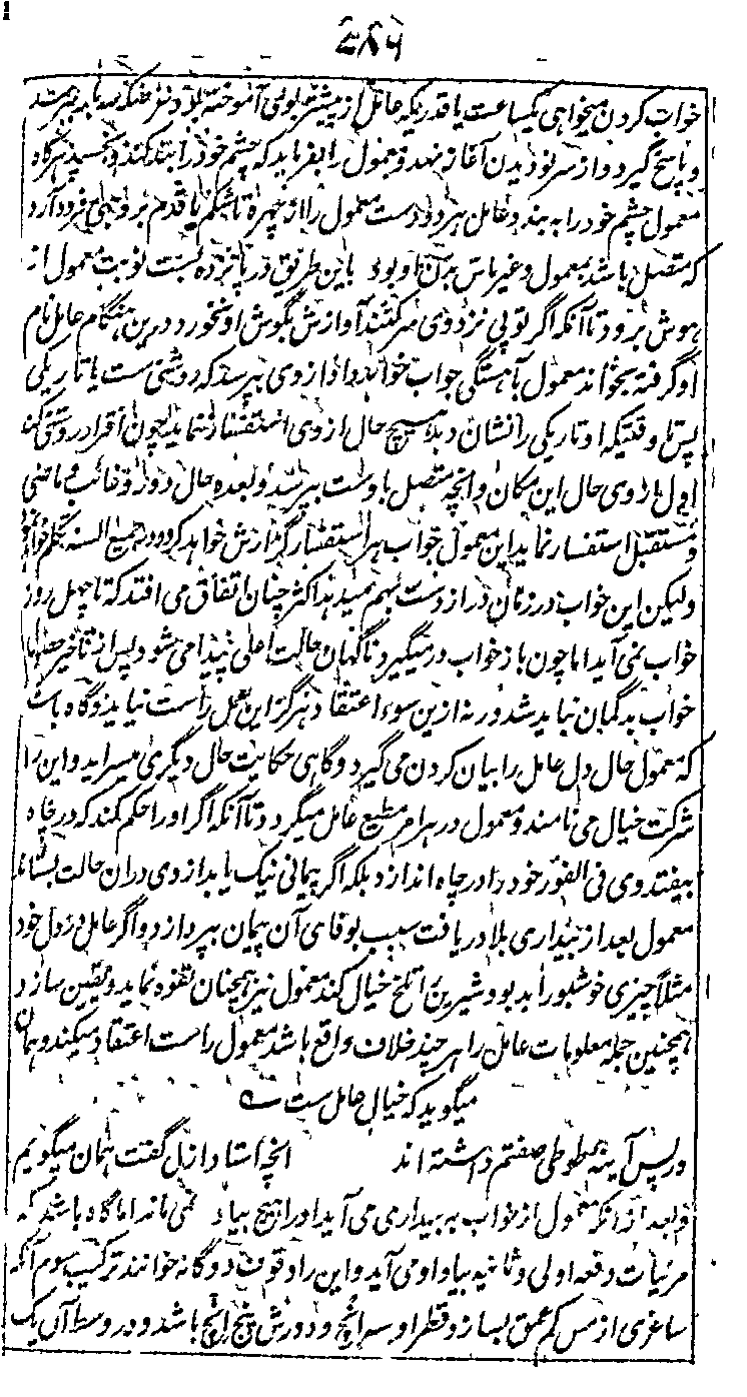 ۲۸۹
خواب کردن میخواهی یکساعت یا قدریکه عامل از پیشتر
و پاسخ گیرد و از سر نو دیدن آغاز نهد و معمول را بفرماید که چشم خود را بند کند و بخسپد هرگاه
معمول چشم خود را به بندد عامل هر دو دست معمول را از چهره تا شکم یا قدم بر وجهی فرود آرد
که متصل باشد بمعمول و غیر ماس بدن او بود باین طریق در پانزده بست نوبت معمول از
هوش برود تا آنکه اگر توپی نزد وی سر کنند آوازش بگوش او نخورد درین هنگام عامل نام
او گرفته بخواند معمول بآهستگی جواب خواهد داد از وی بپرسد که روشنی ست یا تاریکی
پس تا وقتیکه او تاریکی را نشان دهد هیچ حال از وی استفسار ننماید چون اقرار روشنی کند
اول از وی حال این مکان و آنچه متصل باوست بپرسد و بعده حال دور و غائب و ماضی
و مستقبل استفسار نماید این معمول جواب هر استفسار گزارش خواهد کرد و در جمیع السنه تکلم خواهد
ولیکن این خواب در زمان دراز دست بهم میدهد اکثر چنان اتفاق می افتد که تا چهل روز
خواب نمی آید اما چون باز خواب درمیگیرد ناگهان حالت اعلی پیدا می شود پس از تاخیر
خواب بدگمان نباید شد ورنه ازین سوء اعتقاد هرگز این عمل راست نیاید و گاه باشد
که معمول حال دل عامل را بیان کردن می گیرد و گاهی حکایت حال دیگری میسراید و این را
شرکت خیال می نامند و معمول در هر امر مطیع عامل میگردد تا آنکه اگر او را حکم کند که در چاه
بیفتد وی فی الفور خود را در چاه اندازد بلکه اگر پیمانی نیک یا بد از وی دران حالت بستاند
معمول بعد از بیداری بلا دریافت سبب بوفای آن پیمان بپردازد و اگر عامل در دل خود
مثلاً چیزی خوشبو را بدبو و شیرین را تلخ خیال کند معمول نیز همچنان تفوه نماید و یقین سازد
همچنین جمله معلومات عامل را هر چند خلاف واقع باشد معمول راست اعتقاد میکند و همان
میگوید که خیال عامل ست
در پس آینه طوطی صفتم داشته اند آنچه استاد ازل گفت همان میگویم
و بعد از آنکه معمول از خواب به بیداری می آید او را هیچ بیاد نمی ماند اما گاه باشد که
مرئیات دفعه اولی و ثانیه بیاد او می آید و این را وقوف دوگانه خوانند ترکیب سوم آنکه
ساغری از مس کم عمق بسازد و قطر او سه انچ و دورش پنج انچ باشد و در وسط آن یک